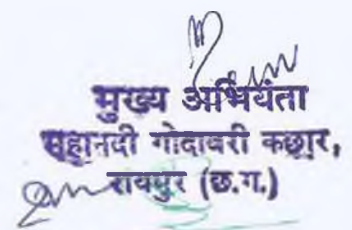 मुख्य अभियंता
महानदी गोदावरी कछार,
रायपुर (छ.ग.)